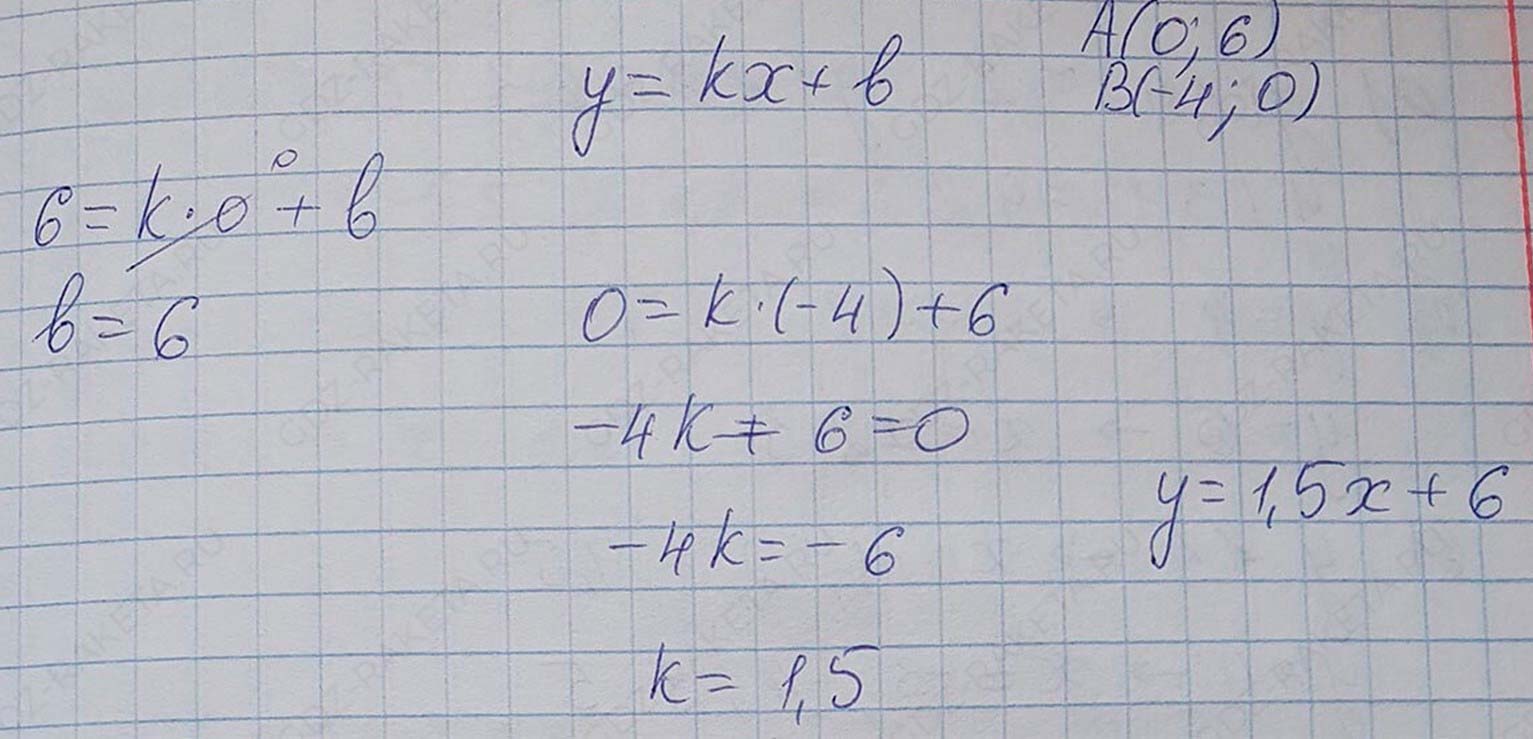 A(0; 6)
y = kx + b
B(-4; 0)
0
6 = k·0 + b
b = 6
0 = k·(-4) + 6
-4k + 6 = 0
y = 1,5x + 6
-4k = -6
k = 1,5
GDZ-RAKETA.RU